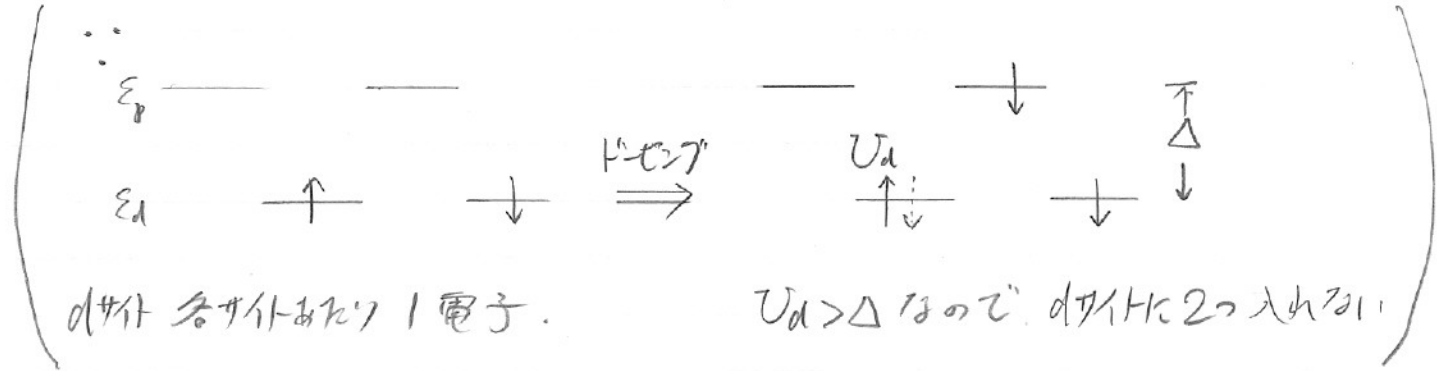 ∵
εp
ドーピング
Ud
Δ
εd
dサイト 各サイトあたり 1電子.
Ud>Δ なので dサイトに2つ入れない